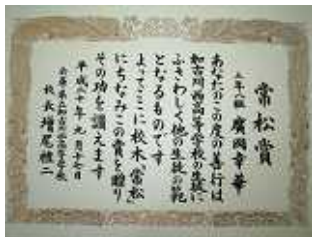 常松賞
三年八組 廣岡幸華
あなたのこの度の善行は
加古川西高等学校の生徒に
ふさわしく他の生徒の範
となるものです
よってここに校木「常松」
にちなみこの賞を贈り
その功を讃えます
平成二十年九月十七日
兵庫県立加古川西高等学校
校長 増尾健二